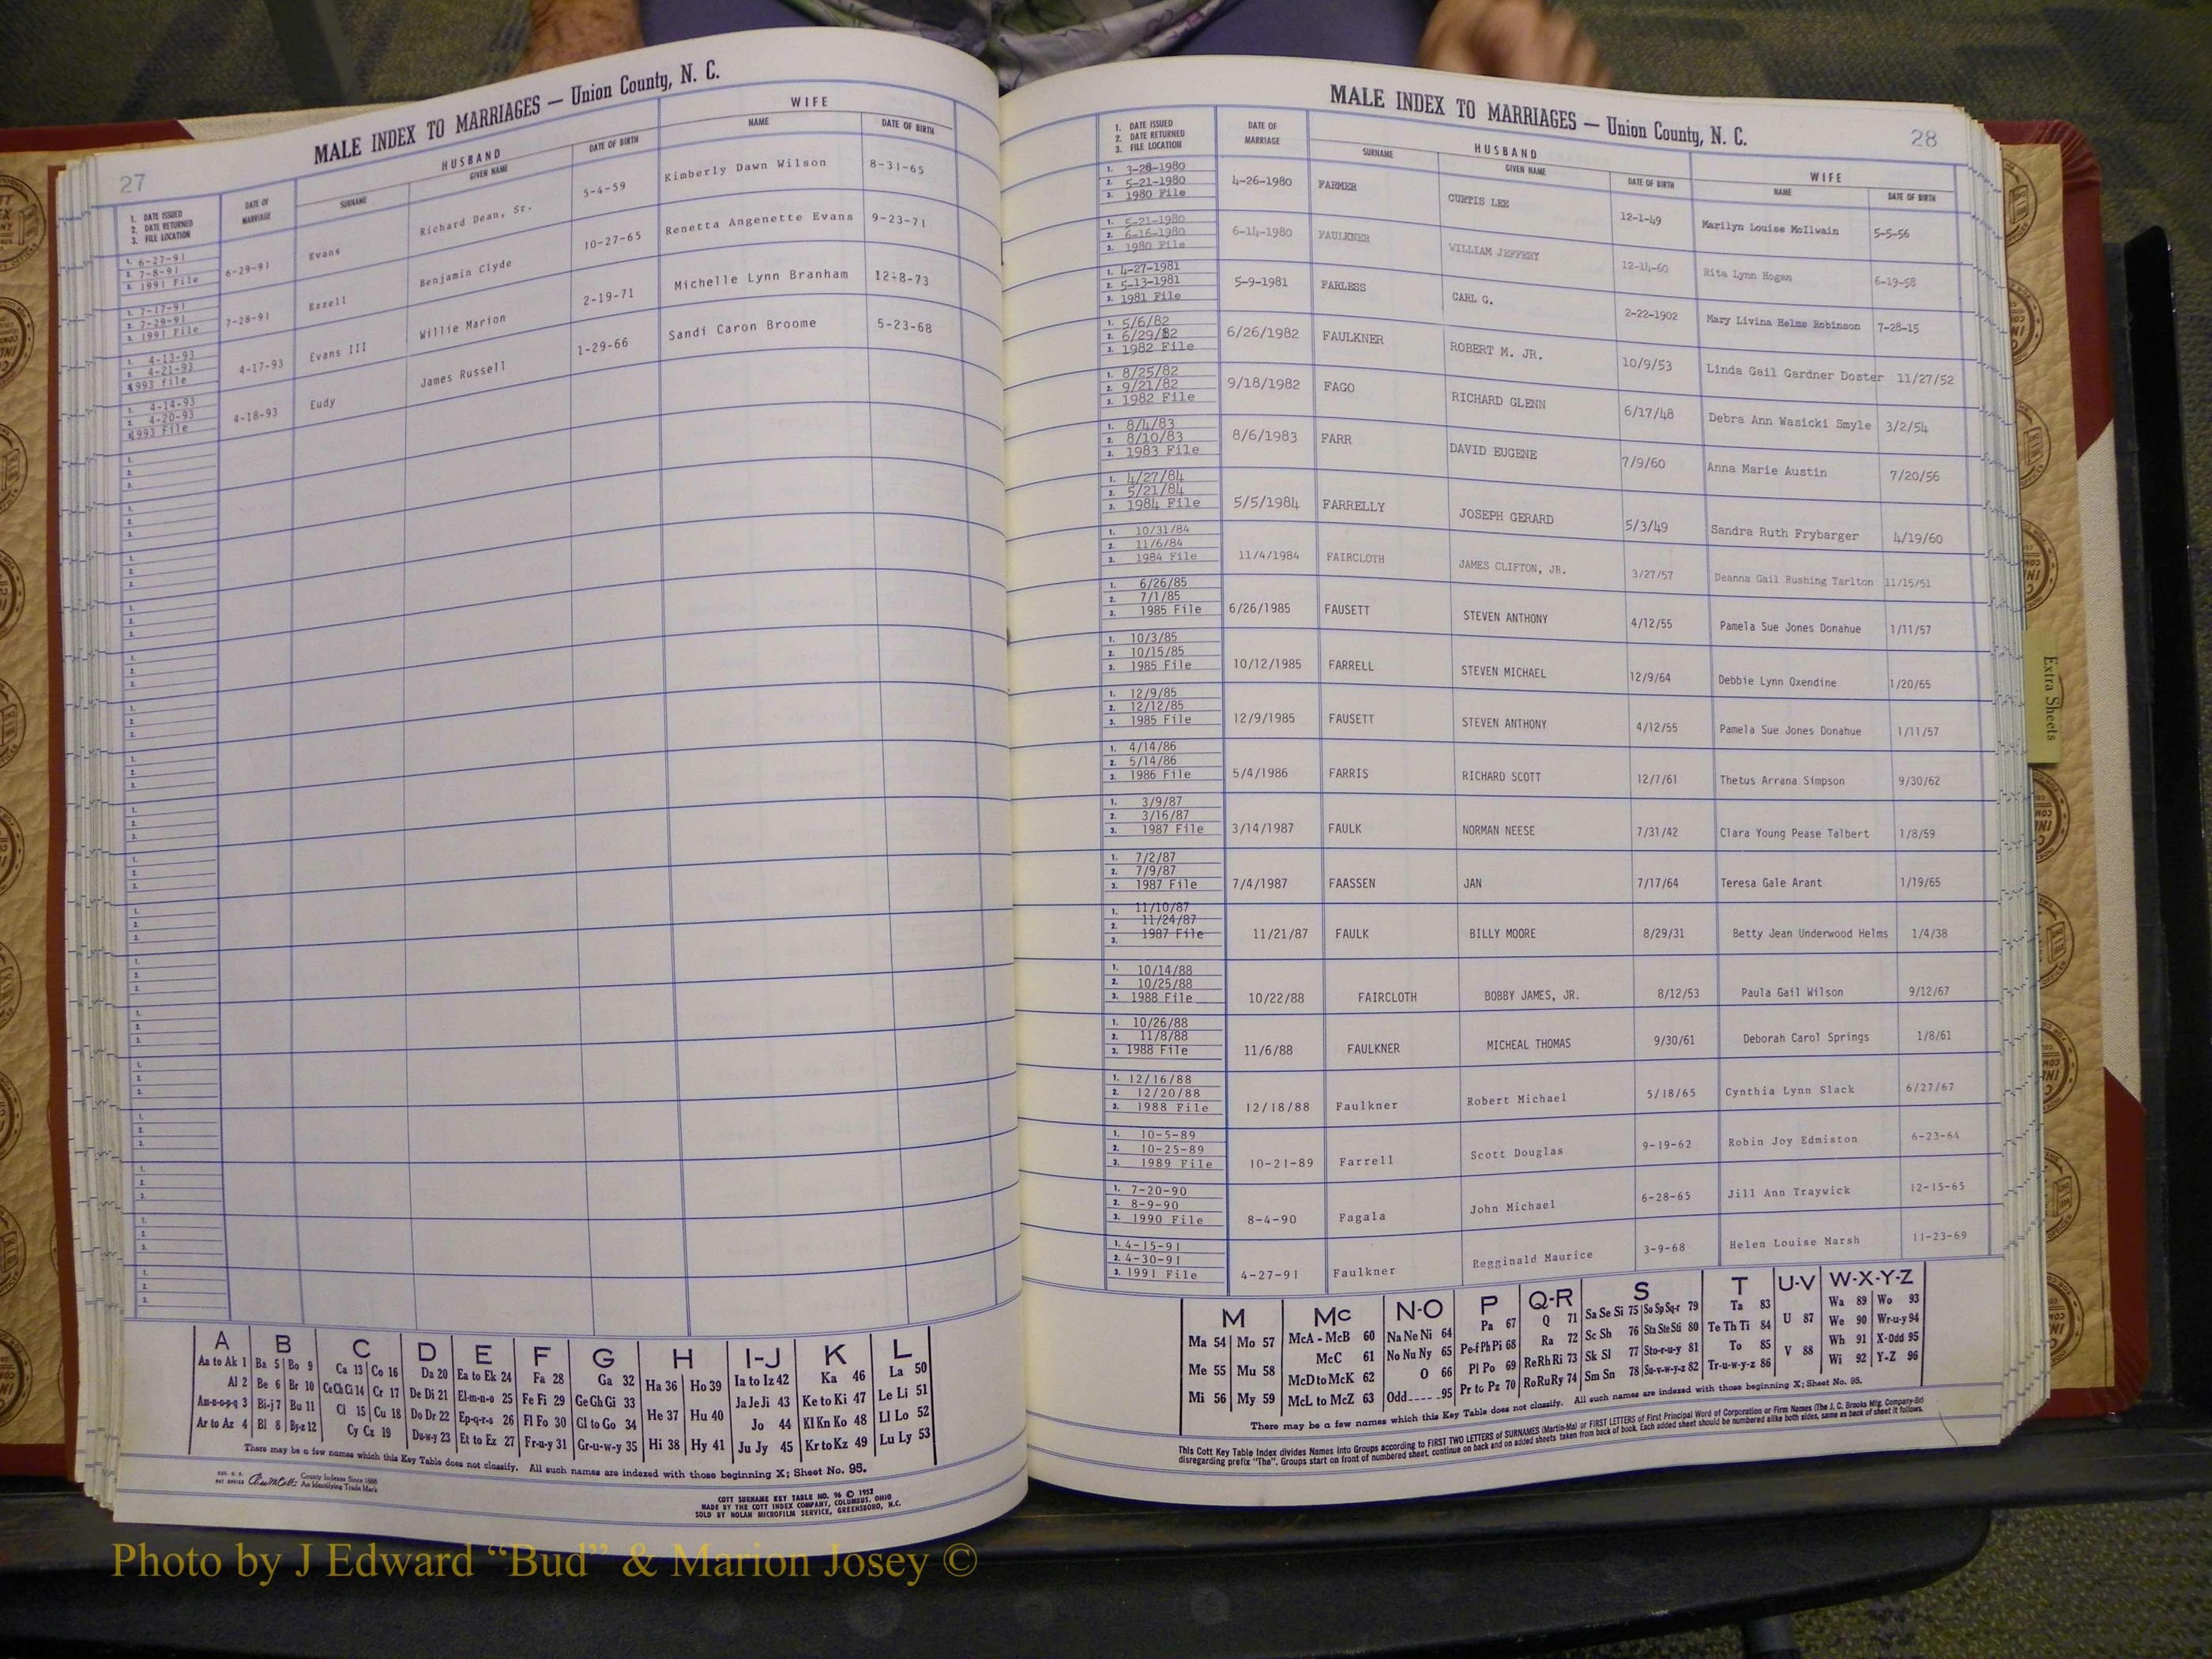 27
MALE INDEX TO MARRIAGES — Union County, N. C.
1. DATE ISSUED
2. DATE RETURNED
3. FILE LOCATION
DATE OF MARRIAGE
HUSBAND
SURNAME GIVEN NAME DATE OF BIRTH
WIFE
NAME DATE OF BIRTH
1. 6-27-91
2. 7-8-91
3. 1991 File
6-29-91 Evans Richard Dean, Sr. 5-4-59 Kimberly Dawn Wilson 8-31-65
1. 7-17-91
2. 7-29-91
3. 1991 File
7-28-91 Ezzell Benjamin Clyde 10-27-65 Renetta Angenette Evans 9-23-71
1. 4-13-93
2. 4-21-93
1993 file
4-17-93 Evans III Willie Marion 2-19-71 Michelle Lynn Branham 12-8-73
1. 4-14-93
2. 4-20-93
1993 File
4-18-93 Eudy James Russell 1-29-66 Sandi Caron Broome 5-23-68
A B C D E F G H I-J K L
Aa to Ak 1 Ba 5 Bo 9 Ca 13 Co 16 Da 20 Ea to Ek 24 Fa 28 Ga 32 Ha 36 Ho 39 Ia to Iz 42 Ka 46 La 50
Al 2 Be 6 Br 10 Ce Ch Ci 14 Cr 17 De Di 21 El-m-n-o 25 Fe Fi 29 Ge Gh Gi 33 He 37 Hu 40 Ja Je Ji 43 Ke to Ki 47 Le Li 51
Am-n-o-p-q 3 Bi-j 7 Bu 11 Cl 15 Cu 18 Do Dr 22 Ep-q-r-s 26 Fl Fo 30 Gl to Go 34 Hi 38 Hy 41 Jo 44 Kl Kn Ko 48 Ll Lo 52
Ar to Az 4 Bl 8 By-z 12 Cy Cz 19 Du-w-y 23 Et to Ez 27 Fr-u-y 31 Gr-u-w-y 35 Ju Jy 45 Kr to Kz 49 Lu Ly 53
There may be a few names which this Key Table does not classify. All such names are indexed with those beginning X; Sheet No. 95.
County Indexes Since 1888
An Identifying Trade Mark
COTT SURNAME KEY TABLE NO. 96 © 1952
MADE BY THE COTT INDEX COMPANY, COLUMBUS, OHIO
SOLD BY NOLAN MICROFILM SERVICE, GREENSBORO, N.C.
MALE INDEX TO MARRIAGES — Union County, N. C.
28
1. DATE ISSUED
2. DATE RETURNED
3. FILE LOCATION
DATE OF MARRIAGE
HUSBAND
SURNAME GIVEN NAME DATE OF BIRTH
WIFE
NAME DATE OF BIRTH
1. 3-28-1980
2. 5-21-1980
3. 1980 File
4-26-1980 FARMER CURTIS LEE 12-1-49 Marilyn Louise McIlwain 5-5-56
1. 5-21-1980
2. 6-16-1980
3. 1980 File
6-14-1980 FAULKNER WILLIAM JEFFERY 12-14-60 Rita Lynn Hogan 6-19-58
1. 4-27-1981
2. 5-13-1981
3. 1981 File
5-9-1981 FARLESS CARL G. 2-22-1902 Mary Livina Helms Robinson 7-28-15
1. 5/6/82
2. 6/29/82
3. 1982 File
6/26/1982 FAULKNER ROBERT M. JR. 10/9/53 Linda Gail Gardner Doster 11/27/52
1. 8/25/82
2. 9/21/82
3. 1982 File
9/18/1982 FAGO RICHARD GLENN 6/17/48 Debra Ann Wasicki Smyle 3/2/54
1. 8/4/83
2. 8/10/83
3. 1983 File
8/6/1983 FARR DAVID EUGENE 7/9/60 Anna Marie Austin 7/20/56
1. 4/27/84
2. 5/21/84
3. 1984 File
5/5/1984 FARRELLY JOSEPH GERARD 5/3/49 Sandra Ruth Frybarger 4/19/60
1. 10/31/84
2. 11/6/84
3. 1984 File
11/4/1984 FAIRCLOTH JAMES CLIFTON, JR. 3/27/57 Deanna Gail Rushing Tarlton 11/15/51
1. 6/26/85
2. 7/1/85
3. 1985 File
6/26/1985 FAUSETT STEVEN ANTHONY 4/12/55 Pamela Sue Jones Donahue 1/11/57
1. 10/3/85
2. 10/15/85
3. 1985 File
10/12/1985 FARRELL STEVEN MICHAEL 12/9/64 Debbie Lynn Oxendine 1/20/65
1. 12/9/85
2. 12/12/85
3. 1985 File
12/9/1985 FAUSETT STEVEN ANTHONY 4/12/55 Pamela Sue Jones Donahue 1/11/57
1. 4/14/86
2. 5/14/86
3. 1986 File
5/4/1986 FARRIS RICHARD SCOTT 12/7/61 Thetus Arrana Simpson 9/30/62
1. 3/9/87
2. 3/16/87
3. 1987 File
3/14/1987 FAULK NORMAN NEESE 7/31/42 Clara Young Pease Talbert 1/8/59
1. 7/2/87
2. 7/9/87
3. 1987 File
7/4/1987 FAASSEN JAN 7/17/64 Teresa Gale Arant 1/19/65
1. 11/10/87
2. 11/24/87
3. 1987 File
11/21/87 FAULK BILLY MOORE 8/29/31 Betty Jean Underwood Helms 1/4/38
1. 10/14/88
2. 10/25/88
3. 1988 File
10/22/88 FAIRCLOTH BOBBY JAMES, JR. 8/12/53 Paula Gail Wilson 9/12/67
1. 10/26/88
2. 11/8/88
3. 1988 File
11/6/88 FAULKNER MICHEAL THOMAS 9/30/61 Deborah Carol Springs 1/8/61
1. 12/16/88
2. 12/20/88
3. 1988 File
12/18/88 Faulkner Robert Michael 5/18/65 Cynthia Lynn Slack 6/27/67
1. 10-5-89
2. 10-25-89
3. 1989 File
10-21-89 Farrell Scott Douglas 9-19-62 Robin Joy Edmiston 6-23-64
1. 7-20-90
2. 8-9-90
3. 1990 File
8-4-90 Fagala John Michael 6-28-65 Jill Ann Traywick 12-15-65
1. 4-15-91
2. 4-30-91
3. 1991 File
4-27-91 Faulkner Regginald Maurice 3-9-68 Helen Louise Marsh 11-23-69
M Mc N-O P Q-R S T U-V W-X-Y-Z
Ma 54 Mo 57 McA - McB 60 Na Ne Ni 64 Pa 67 Q 71 Sa Se Si 75 So Sp Sq-r 79 Ta 83 U 87 Wa 89 Wo 93
Me 55 Mu 58 McC 61 No Nu Ny 65 Pe-f Ph Pi 68 Ra 72 Sc Sh 76 Sta Ste Sti 80 Te Th Ti 84 V 88 We 90 Wr-u-y 94
Mi 56 My 59 McD to McK 62 O 66 Pl Po 69 Re Rh Ri 73 Sk Sl 77 Sto-r-u-y 81 To 85 Wh 91 X-Odd 95
McL to McZ 63 Odd 95 Pr to Pz 70 Ro Ru Ry 74 Sm Sn 78 Su-v-w-y-z 82 Tr-u-w-y-z 86 Wi 92 Y-Z 96
There may be a few names which this Key Table does not classify. All such names are indexed with those beginning X; Sheet No. 95.
This Cott Key Table Index divides Names into Groups according to FIRST TWO LETTERS of SURNAMES (Martin-Ma) or FIRST LETTERS of First Principal Word of Corporation or Firm Names (The J. C. Brooks Mfg. Company-Br)
disregarding prefix "The". Groups start on front of numbered sheet, continue on back and on added sheets taken from back of book. Each added sheet should be numbered alike both sides, same as back of sheet it follows.
Extra Sheets
Photo by J Edward “Bud” & Marion Josey ©